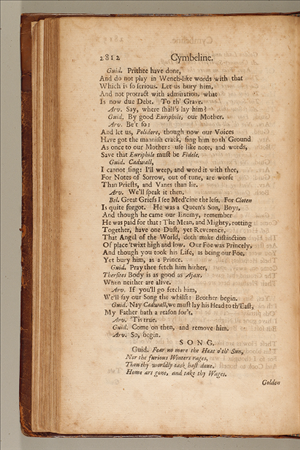 2812 Cymbeline.
Guid. Prithee have done,
And do not play in Wench-like words with that
Which is so serious. Let us bury him,
And not protract with admiration, what
Is now due Debt. To th' Grave.
Arv. Say, where shall's lay him?
Guid. By good Euriphile, our Mother.
Arv. Be't so:
And let us, Polidore, though now our Voices
Have got the mannish crack, sing him to th' Ground
As once to our Mother: use like note, and words,
Save that Euriphile must be Fidele.
Guid. Cadwall,
I cannot sing: I'll weep, and word it with thee,
For Notes of Sorrow, out of tune, are worse
Than Priests, and Vanes that lie.
Arv. We'll speak it then.
Bel. Great Griefs I see Med'cine the less. For Cloten
Is quite forgot. He was a Queen's Son, Boys,
And though he came our Enemy, remember
He was paid for that: The Mean, and Mighty, rotting
Together, have one Dust, yet Reverence,
That Angel of the World, doth make distinction
Of place 'twixt high and low. Our Foe was Princely,
And though you took his Life, as being our Foe,
Yet bury him, as a Prince.
Guid. Pray thee fetch him hither,
Thersites Body is as good as Ajax,
When neither are alive.
Arv. If you'll go fetch him,
We'll say our Song the whilst: Brother begin.
Guid. Nay Cadwall, we must lay his Head to th' East,
My Father hath a reason for't.
Arv. 'Tis true.
Guid. Come on then, and remove him.
Arv. So, begin.
SONG.
Guid. Fear no more the Heat o'th' Sun,
Nor the furious Winters rages,
Thou thy worldly task hast done,
Home art gone, and take thy Wages.
Golden